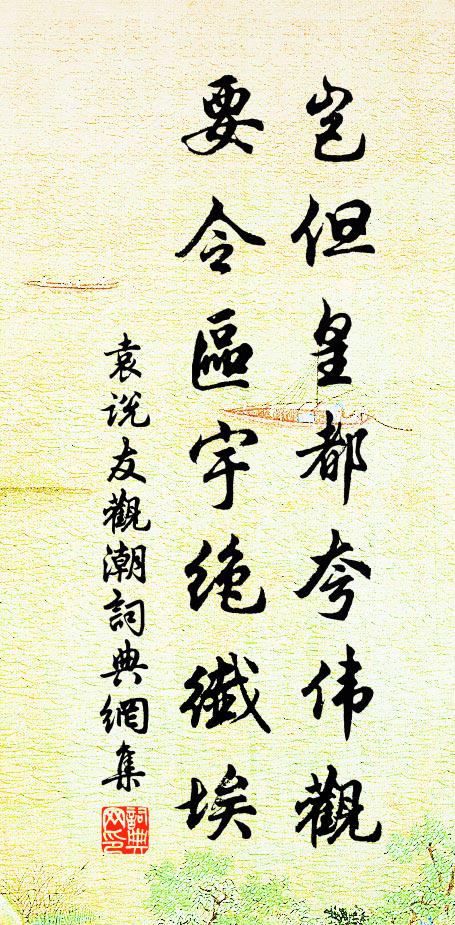 岂但皇都夸伟觀
要令區宇绝纖埃
袁说友觀潮詞典網集
詞典网印